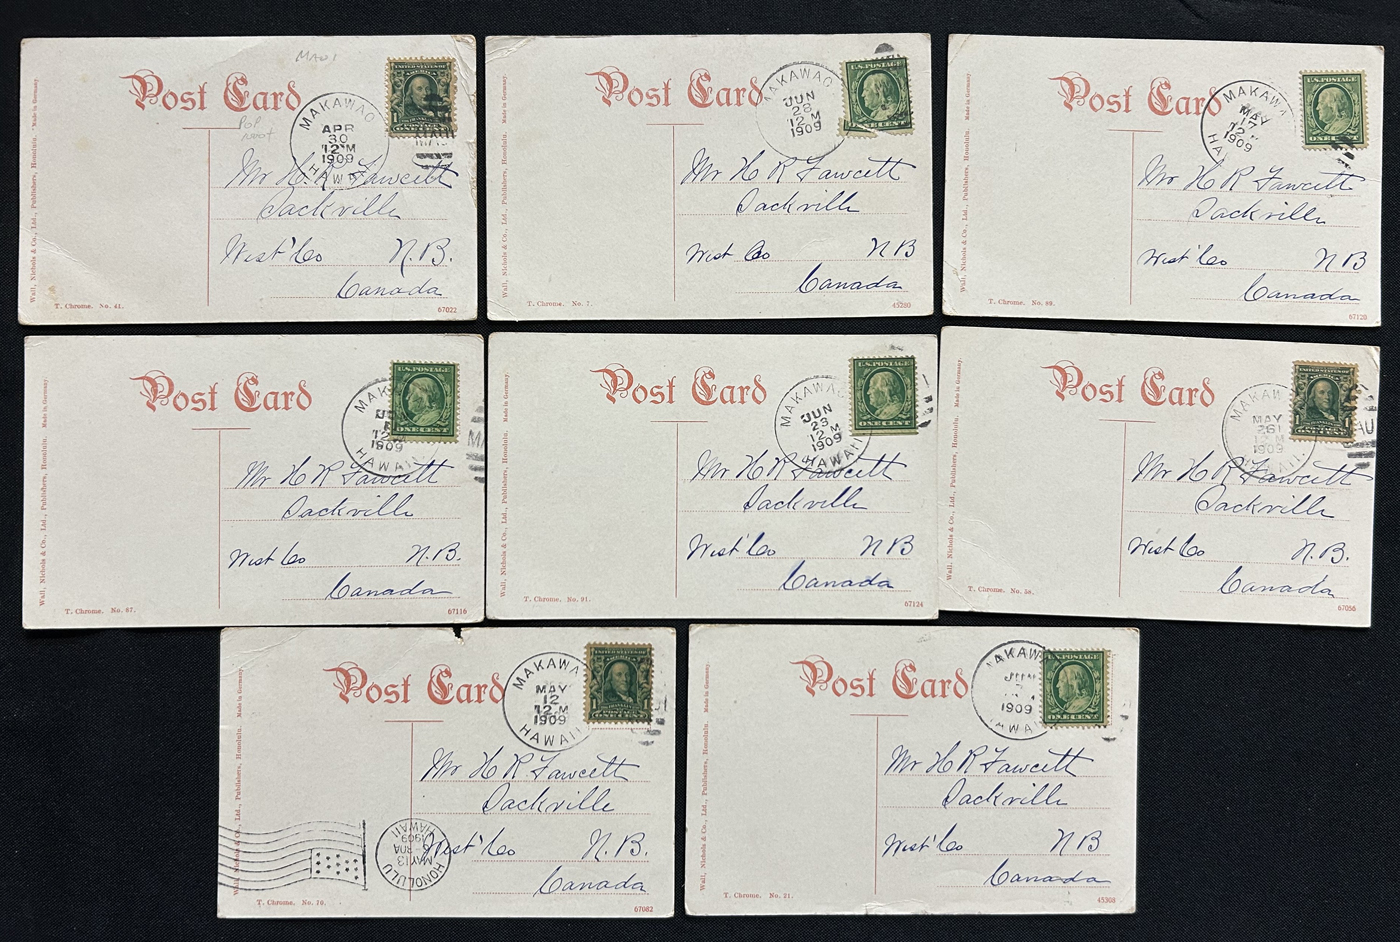 MAUI
Post Card
POP
MAKAWAO
APR
30
12 M
1909
HAWAII
UNITED STATES OF AMERICA
Mr H. R Fawcett
Sackville
West' Co N.B.
Canada
Wall, Nichols & Co., Ltd., Publishers, Honolulu. Made in Germany.
T. Chrome. No. 41.
67022
Post Card
MAKAWAO
JUN
28
12 M
1909
U.S. POSTAGE
ONE CENT
Mr H R Fawcett
Sackville
West Co NB
Canada
Wall, Nichols & Co., Ltd., Publishers, Honolulu. Made in Germany.
T. Chrome. No. 7.
45280
Post Card
MAKAWA
MAY
17
12 M
1909
HA
U.S. POSTAGE
ONE CENT
Mr H R Fawcett
Sackville
West' Co NB
Canada
Wall, Nichols & Co., Ltd., Publishers, Honolulu. Made in Germany.
T. Chrome. No. 89.
67120
Post Card
MAK
12
1909
HAWAII
U.S. POSTAGE
ONE CENT
Mr H R Fawcett
Sackville
West Co N.B.
Canada
Wall, Nichols & Co., Ltd., Publishers, Honolulu. Made in Germany.
T. Chrome. No. 87.
67116
Post Card
MAKAWA
JUN
23
12 M
1909
HAWAII
U.S. POSTAGE
ONE CENT
Mr H R Fawcett
Sackville
West' Co NB
Canada
Wall, Nichols & Co., Ltd., Publishers, Honolulu. Made in Germany.
T. Chrome. No. 91.
67124
Post Card
MAKAW
MAY
26
12 M
1909
Mr H R Fawcett
Sackville
West Co N.B.
Canada
Wall, Nichols & Co., Ltd., Publishers, Honolulu. Made in Germany.
T. Chrome. No.
67056
Post Card
MAKAWA
MAY
12
12 M
1909
HAWAII
Mr H R Fawcett
Sackville
West' Co N.B.
Canada
HONOLULU
MAY 13
1909
HAWAII
Wall, Nichols & Co., Ltd., Publishers, Honolulu. Made in Germany.
T. Chrome. No. 76.
67082
Post Card
AKAW
JUN
1909
AWA
U.S. POSTAGE
ONE CENT
Mr H R Fawcett
Sackville
West' Co NB
Canada
Wall, Nichols & Co., Ltd., Publishers, Honolulu. Made in Germany.
T. Chrome. No. 21.
45308